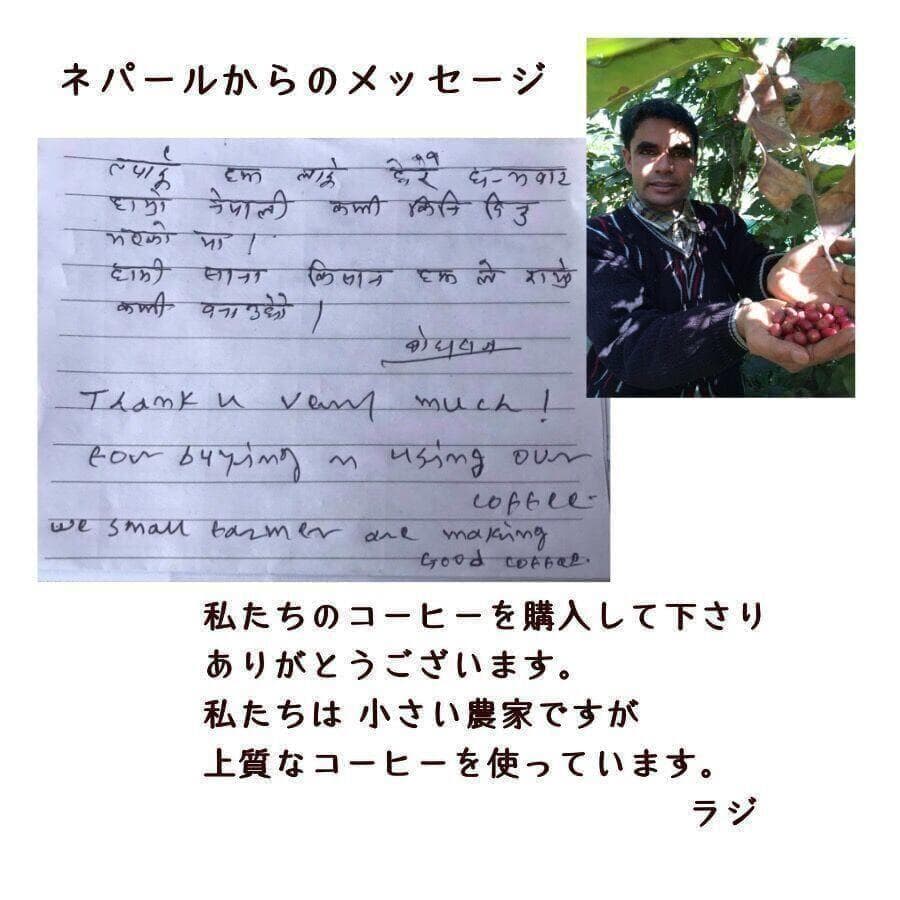 ネパールからのメッセージ
धेरै धन्यवाद
हामी नेपाली कफी किनि दिनु
भएकोमा।
हामी साना किसान हरू ले राम्रो
कफी बनाउछौ।
Thank u very much!
For buying n using our
coffee.
we small farmer are making
Good coffee.
私たちのコーヒーを購入して下さり
ありがとうございます。
私たちは 小さい農家ですが
上質なコーヒーを使っています。
ラジ